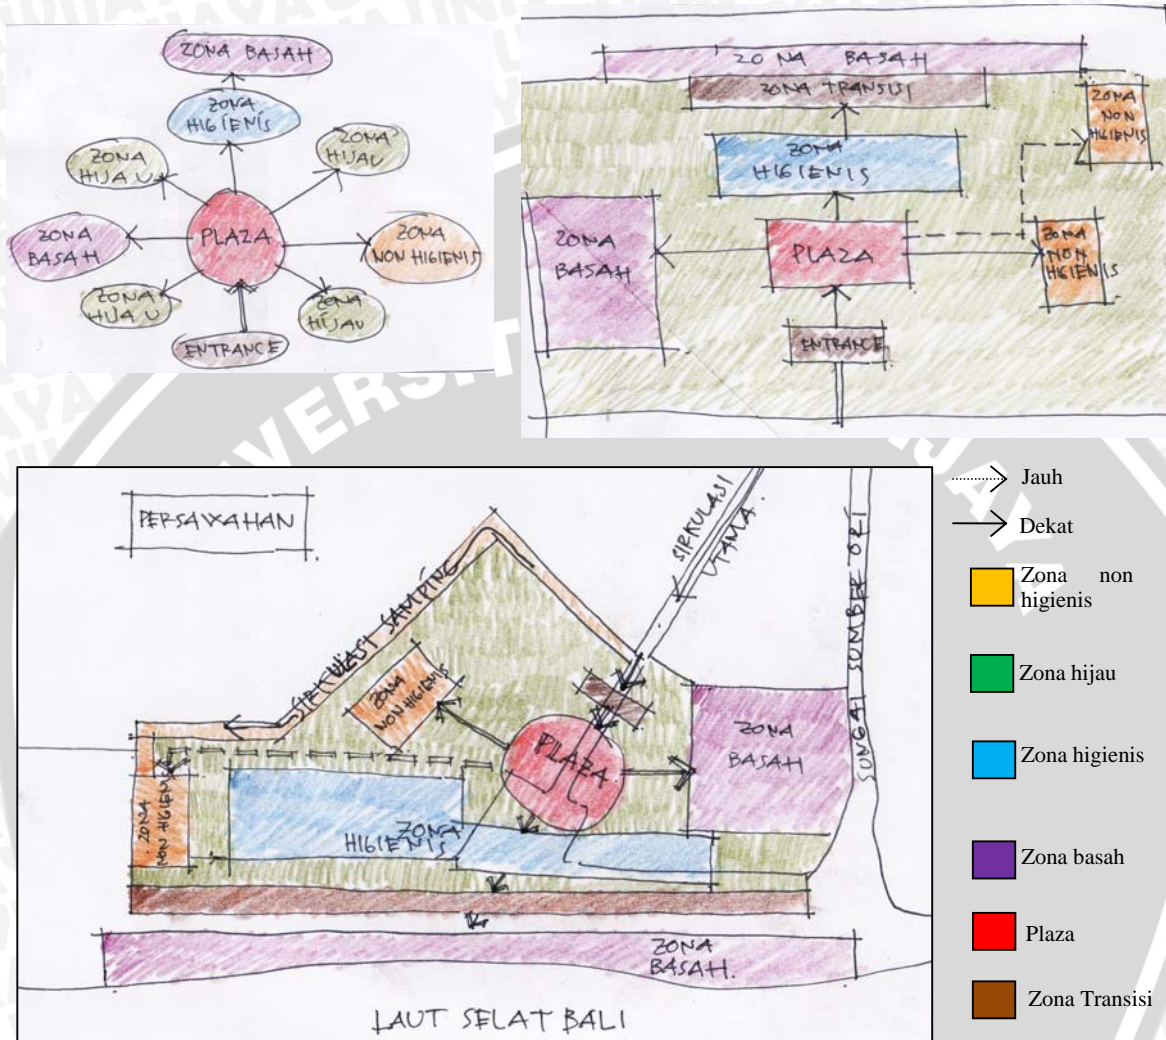 ZONA BASAH
ZONA
HIGIENIS
ZONA
HIJAU
ZONA
HIJAU
ZONA
BASAH
PLAZA
ZONA
NON HIGIENIS
ZONA
HIJAU
ZONA
HIJAU
ENTRANCE
ZONA BASAH
ZONA TRANSISI
ZONA
NON
HIGIENIS
ZONA
HIGIENIS
ZONA
BASAH
PLAZA
ZONA
NON
HIGIENIS
ENTRANCE
PERSAWAHAN
SIRKULASI
UTAMA.
SIRKULASI SAMPING
SUNGAI SUMBER ORI
ZONA
NON HIGIENIS
PLAZA
ZONA
BASAH
ZONA
NON HIGIENIS
ZONA
HIGIENIS
ZONA
BASAH.
LAUT SELAT BALI
Jauh
Dekat
Zona non
higienis
Zona hijau
Zona higienis
Zona basah
Plaza
Zona Transisi